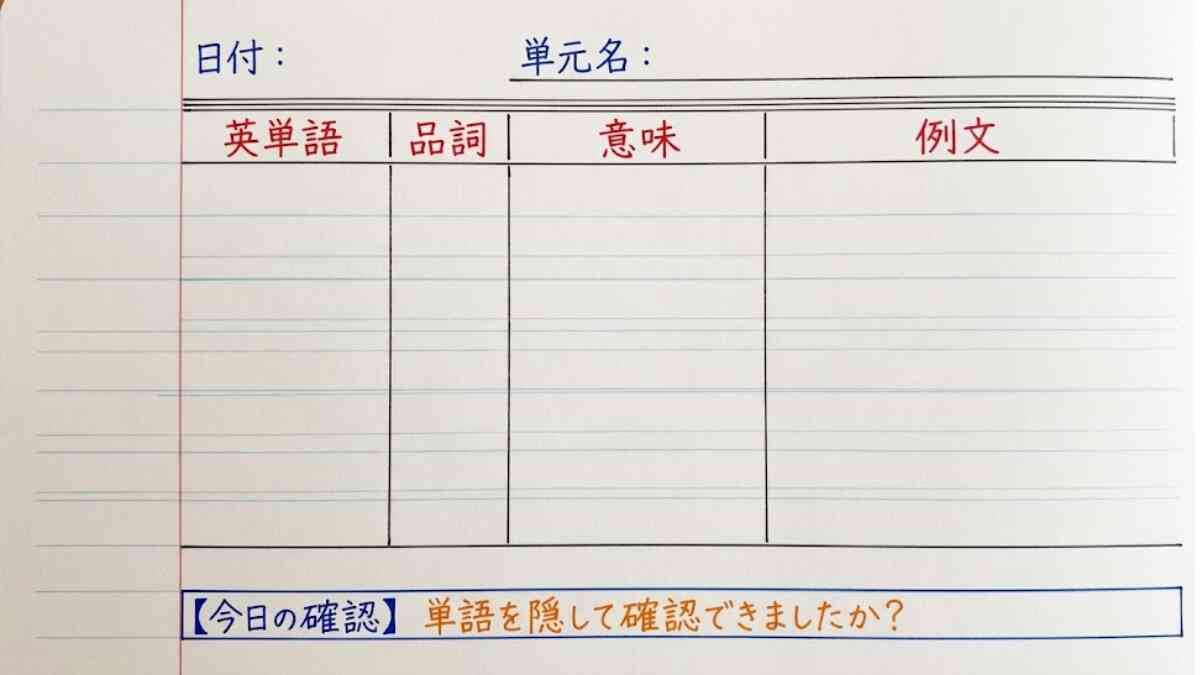 日付： 単元名：
英単語 品詞 意味 例文
【今日の確認】 単語を隠して確認できましたか？